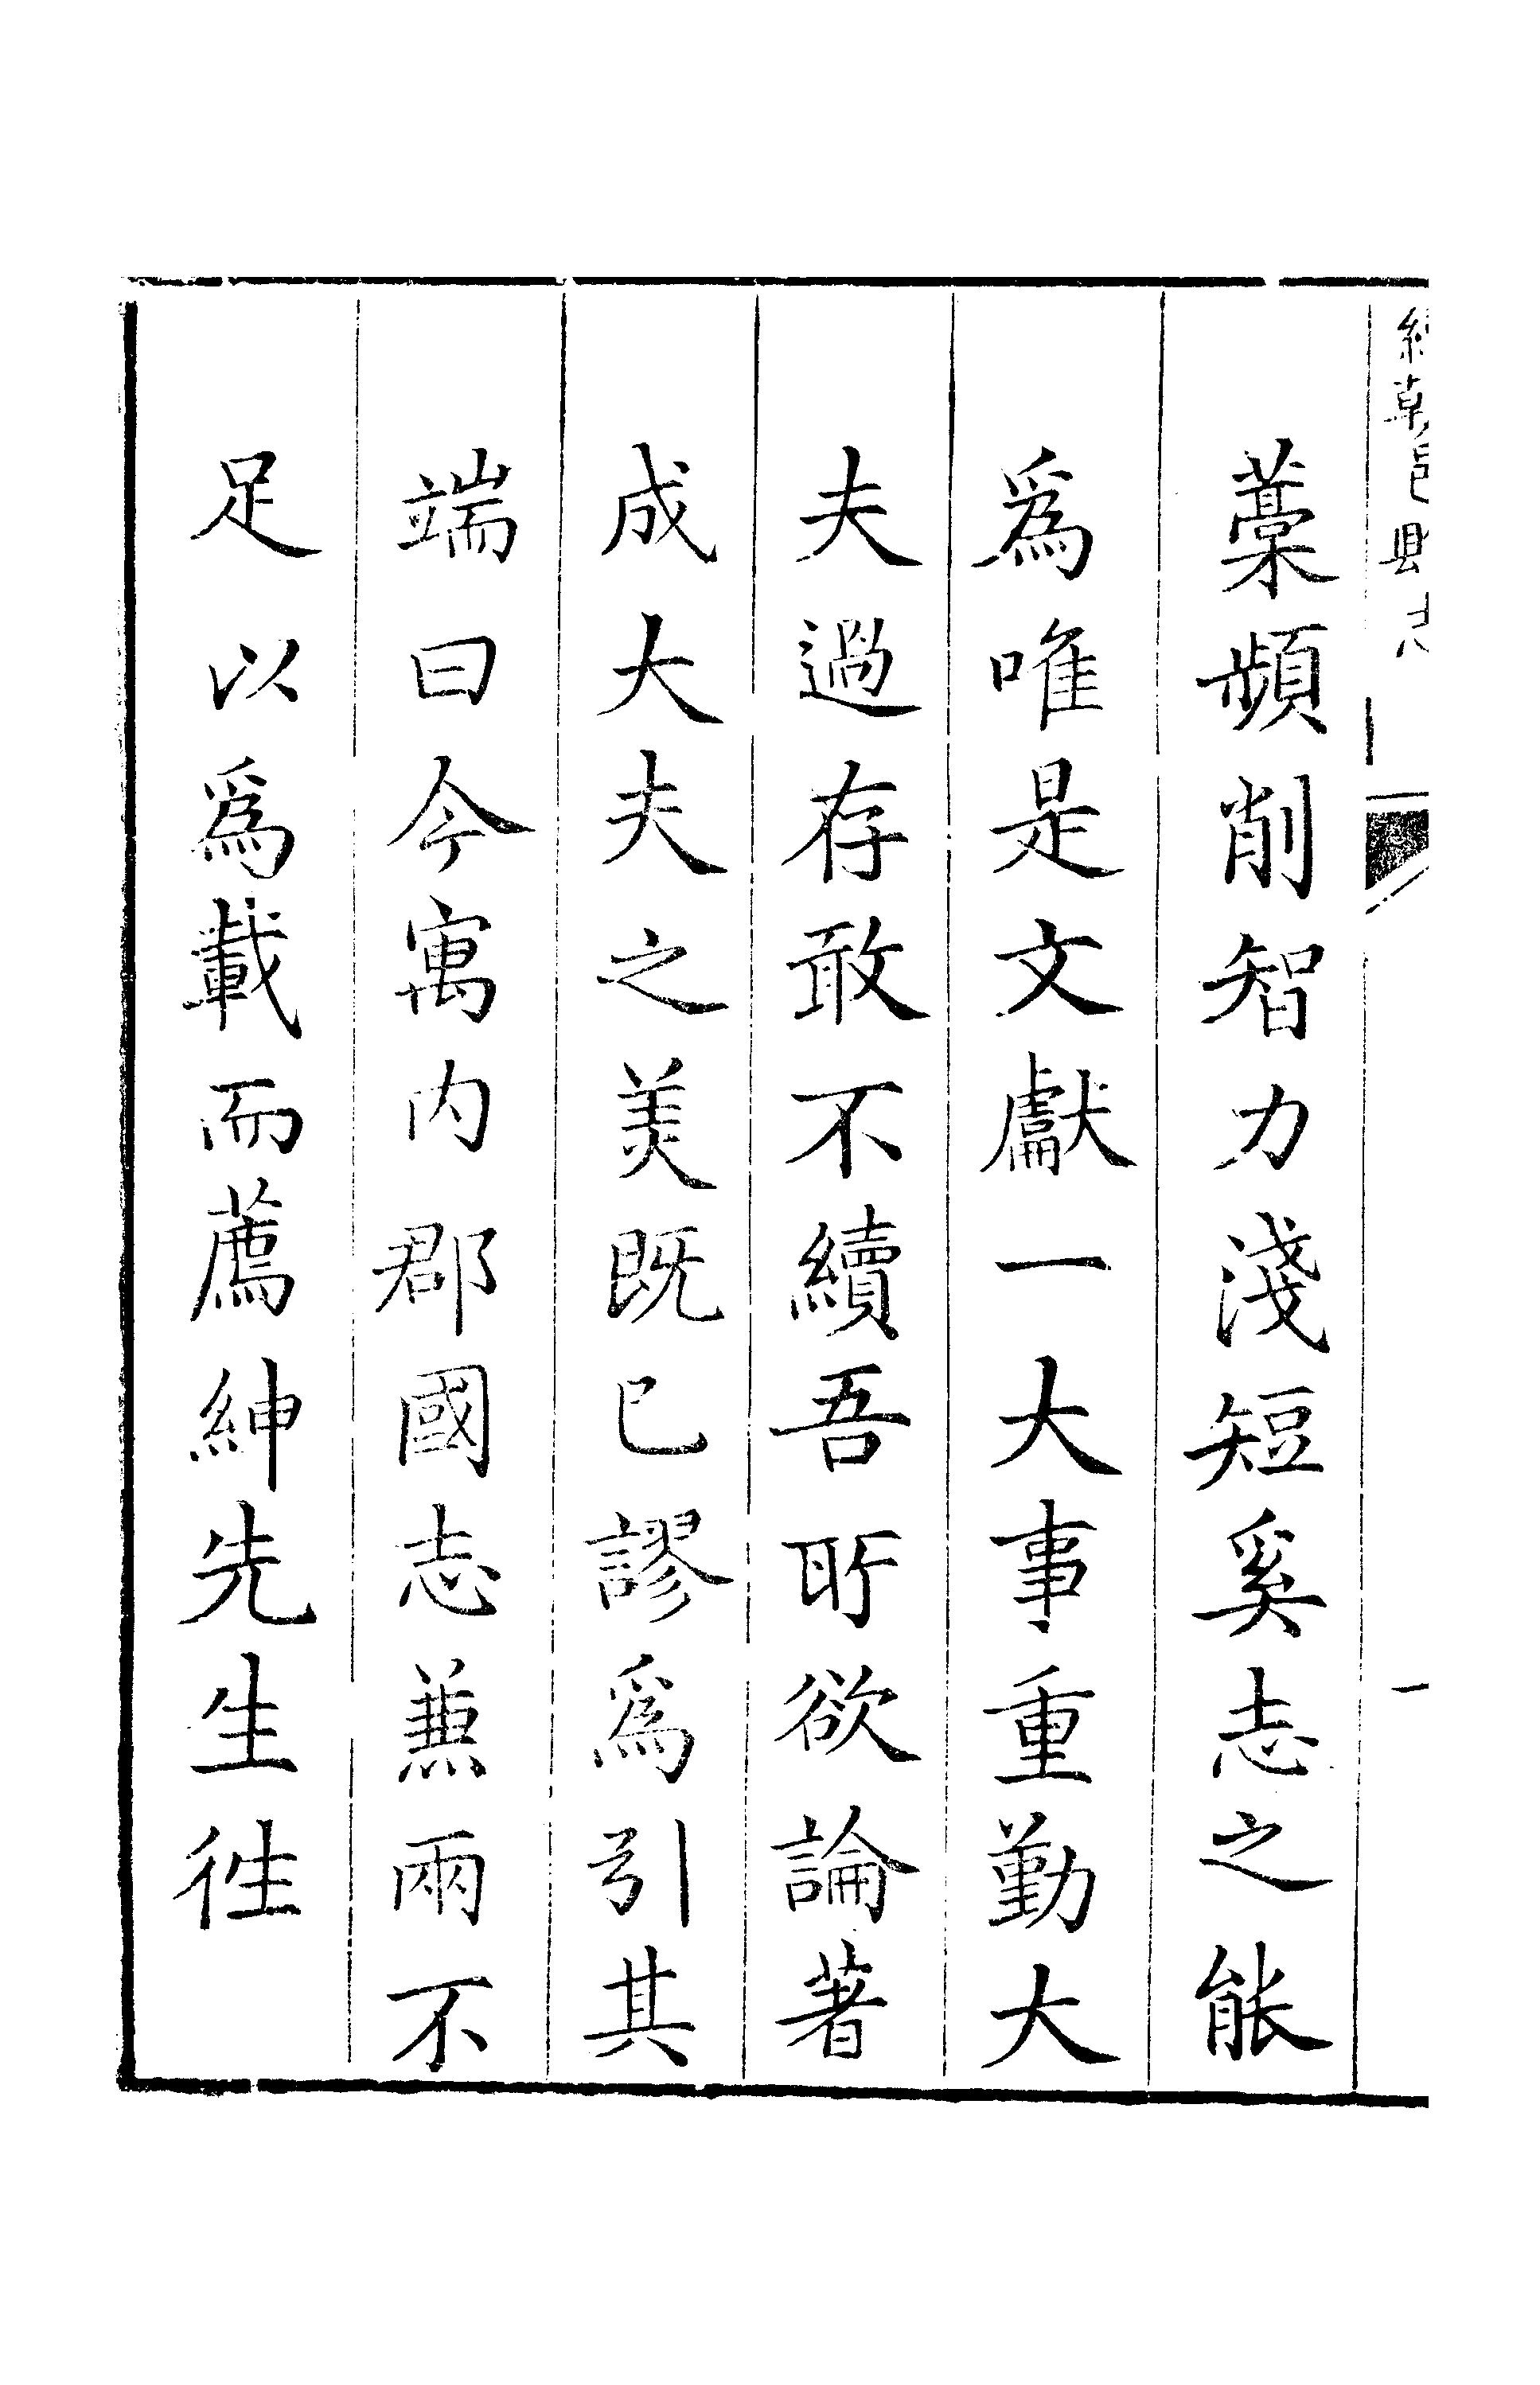 續朝邑縣志
一
藁頻削智力淺短奚志之能
爲唯是文獻一大事重勤大
夫過存敢不續吾所欲論著
成大夫之美既已謬爲引其
端曰今寓内郡國志兼兩不
足以爲載而薦紳先生徃